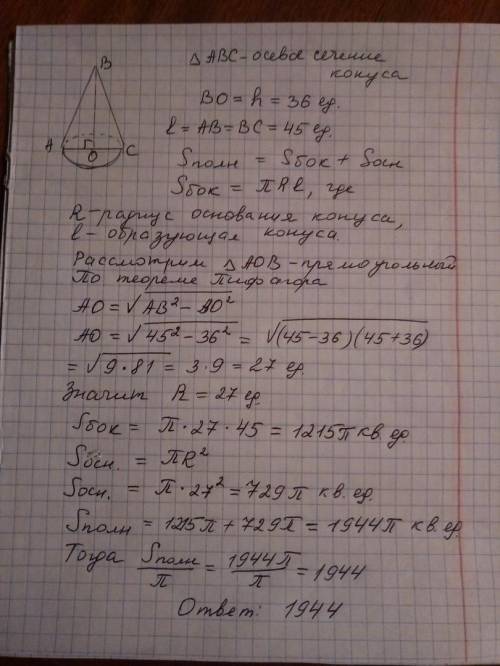 B
△ABC-осевое сечение
конуса
BO = h = 36 ед.
ℓ = AB = BC = 45 ед.
A
O
C
Sполн = Sбок + Sосн
Sбок = πRℓ, где
R-радиус основания конуса,
ℓ- образующая конуса.
Рассмотрим △AOB-прямоугольный
По теореме Пифагора
AO = √(AB² - BO²)
AO = √(45² - 36²) = √((45-36)(45+36))
= √(9·81) = 3·9 = 27 ед.
Значит R = 27 ед.
Sбок = π·27·45 = 1215π кв. ед
Sосн. = πR²
Sосн. = π·27² = 729π кв. ед.
Sполн = 1215π + 729π = 1944π кв. ед.
Тогда Sполн/π = 1944π/π = 1944
Ответ: 1944